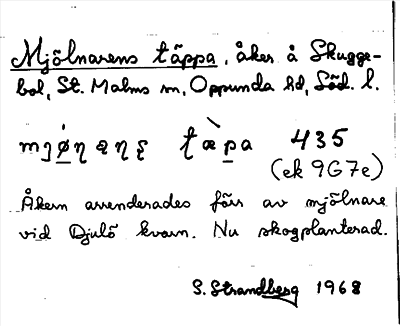 Mjölnarens täppa, åker å Skugge-
bol, St. Malms sn, Oppunda hd, Söd. l.
täpa 435
(ek 9G7e)
Åkern arrenderades förr av mjölnare
vid Djulö kvarn. Nu skogplanterad.
S. Strandberg 1968